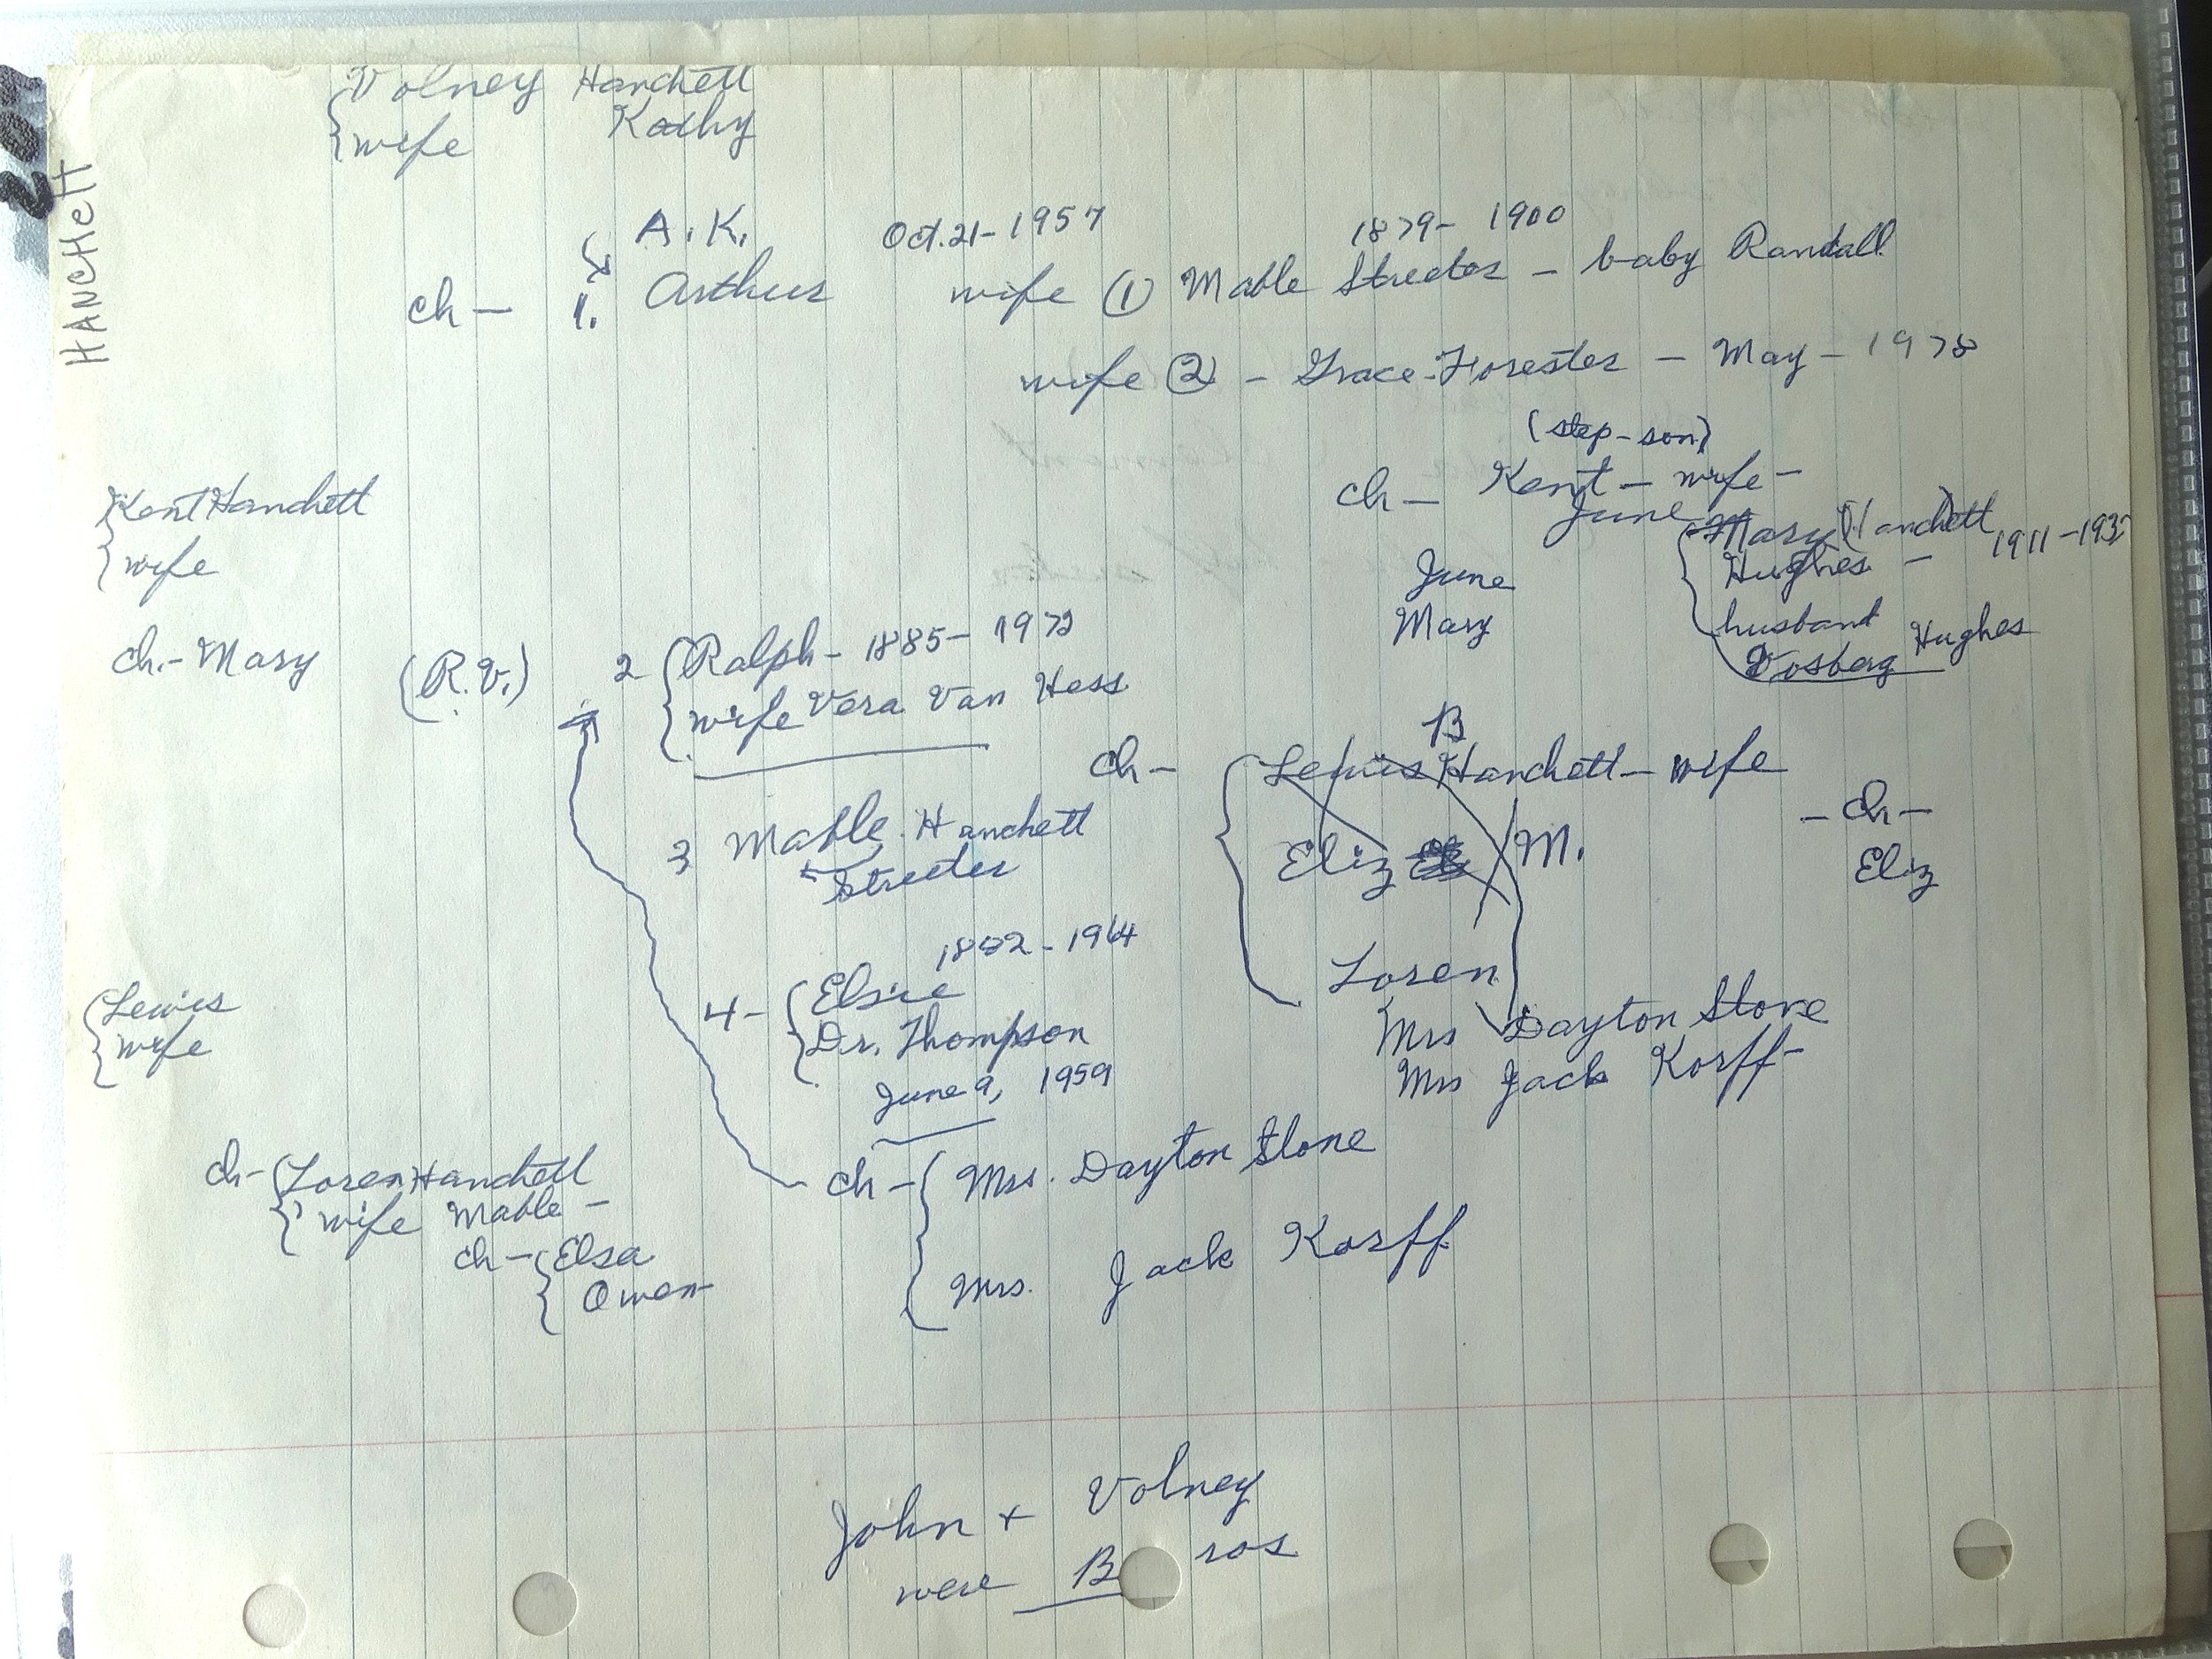 HANCHETT
Volney Hanchett
wife Kathy
A. K.
Oct. 21 - 1957
1879 - 1900
ch - 1. Arthur wife (1) Mable Streeter - baby Randall
wife (2) - Grace Forester - May - 1978
(step-son)
ch - Kent - wife -
June
Kent Hanchett
wife
ch. - Mary
Mary Hanchett
Hughes - 1911-193
husband
Vosberg Hughes
June
Mary
(R.V.) 2 Ralph - 1885 - 1972
wife Vera Van Hess
B
ch - Lewis Hanchett - wife
- ch -
Eliz M.
Eliz
Loren
Mrs Dayton Stone
Mrs Jack Korff -
3 Mable Hanchett
Streeter
1882 - 1964
4 - Elsie
Dr. Thompson
June 9, 1959
Lewis
wife
ch - Loren Hanchett
wife Mable -
ch - Elsa
Owen
ch - Mrs. Dayton Stone
Mrs. Jack Korff
John + Volney
were B ros